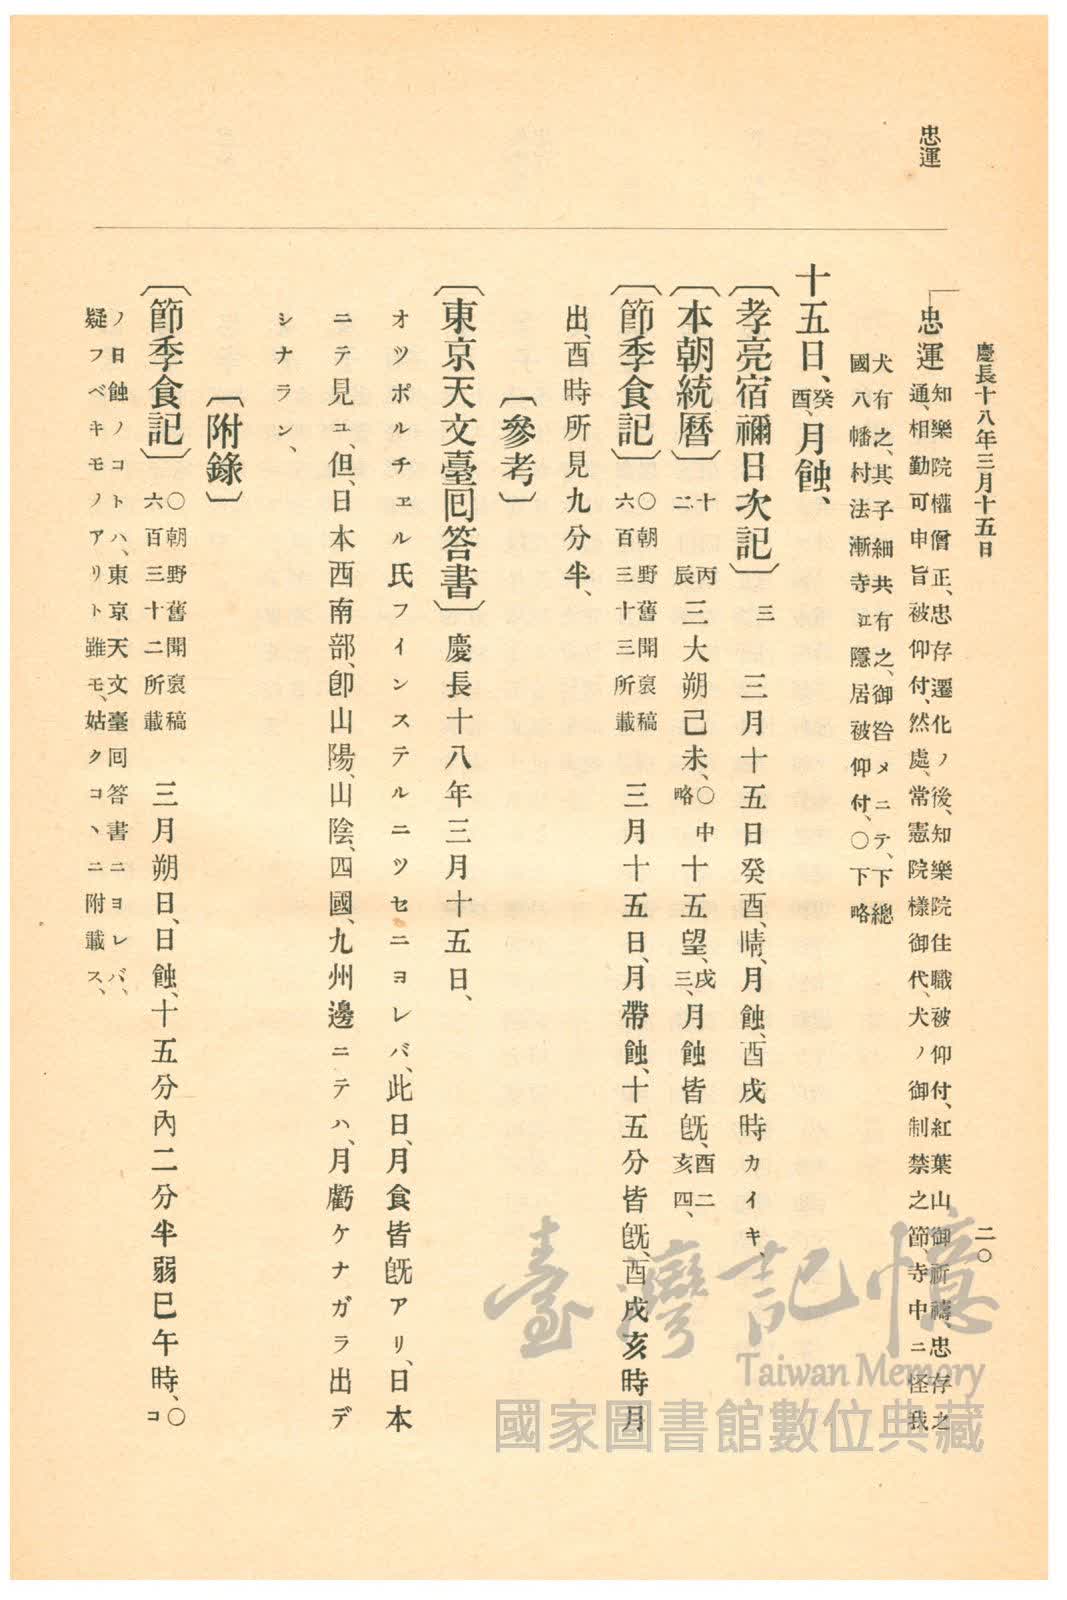 慶長十八年三月十五日　二〇
忠運
忠運
知樂院權僧正、忠存遷化ノ後、知樂院住職被仰付、紅葉山御祈禱、忠存之
通、相勤可申旨被仰付、然處、常憲院樣御代、犬ノ御制禁之節、寺中ニ怪我
犬有之、其子細共有之、御咎メニテ、下總
國八幡村法漸寺江隱居被仰付、〇下略
十五日、癸酉、月蝕、
〔孝亮宿禰日次記〕三　三月十五日癸酉、晴、月蝕、酉戌時カイキ、
〔本朝統曆〕十二　丙辰　三大朔己未、〇中略　十五望、戌三、月蝕皆旣、酉二亥四、
〔節季食記〕〇朝野舊聞裒稿六百三十三所載　三月十五日、月帶蝕、十五分皆旣、酉戌亥時月
出、酉時所見九分半、
〔參考〕
〔東京天文臺囘答書〕慶長十八年三月十五日、
オツポルチェル氏フインステルニツセニヨレバ、此日、月食皆旣アリ、日本
ニテ見ユ、但、日本西南部、卽山陽、山陰、四國、九州邊ニテハ、月虧ケナガラ出デ
シナラン、
〔附錄〕
〔節季食記〕〇朝野舊聞裒稿六百三十二所載　三月朔日、日蝕、十五分內二分半弱巳午時、〇コ
ノ日蝕ノコトハ、東京天文臺囘答書ニヨレバ、
疑フベキモノアリト雖モ、姑クコヽニ附載ス、
臺灣記憶
Taiwan Memory
國家圖書館數位典藏